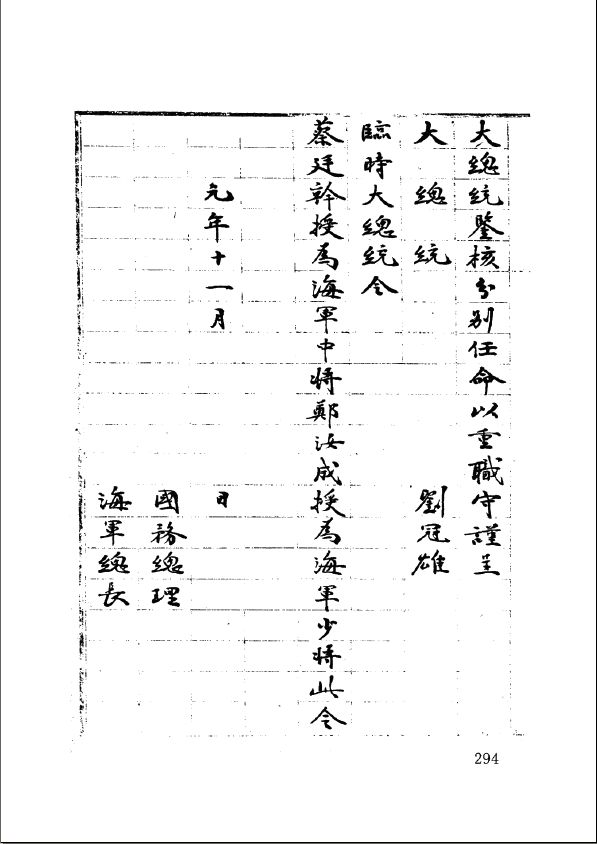 大總統鑒核分別任命以重職守謹呈
大總統 劉冠雄
臨時大總統令
蔡廷幹授為海軍中將鄭汝成授為海軍少將此令
元年十一月 日
國務總理
海軍總長
294